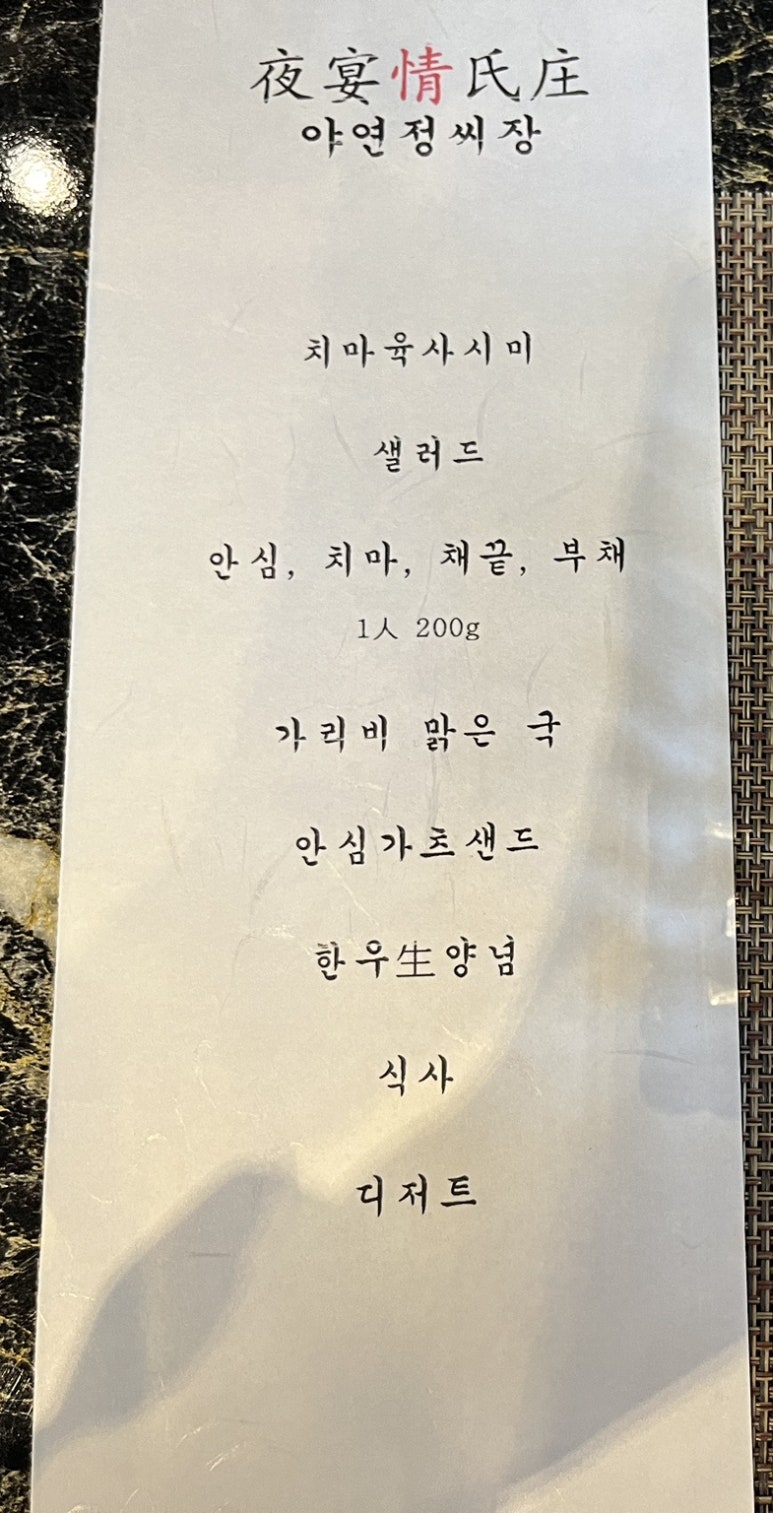 夜宴情氏庄
야연정씨장
치마육사시미
샐러드
안심, 치마, 채끝, 부채
1人 200g
가리비 맑은 국
안심가츠샌드
한우生양념
식사
디저트